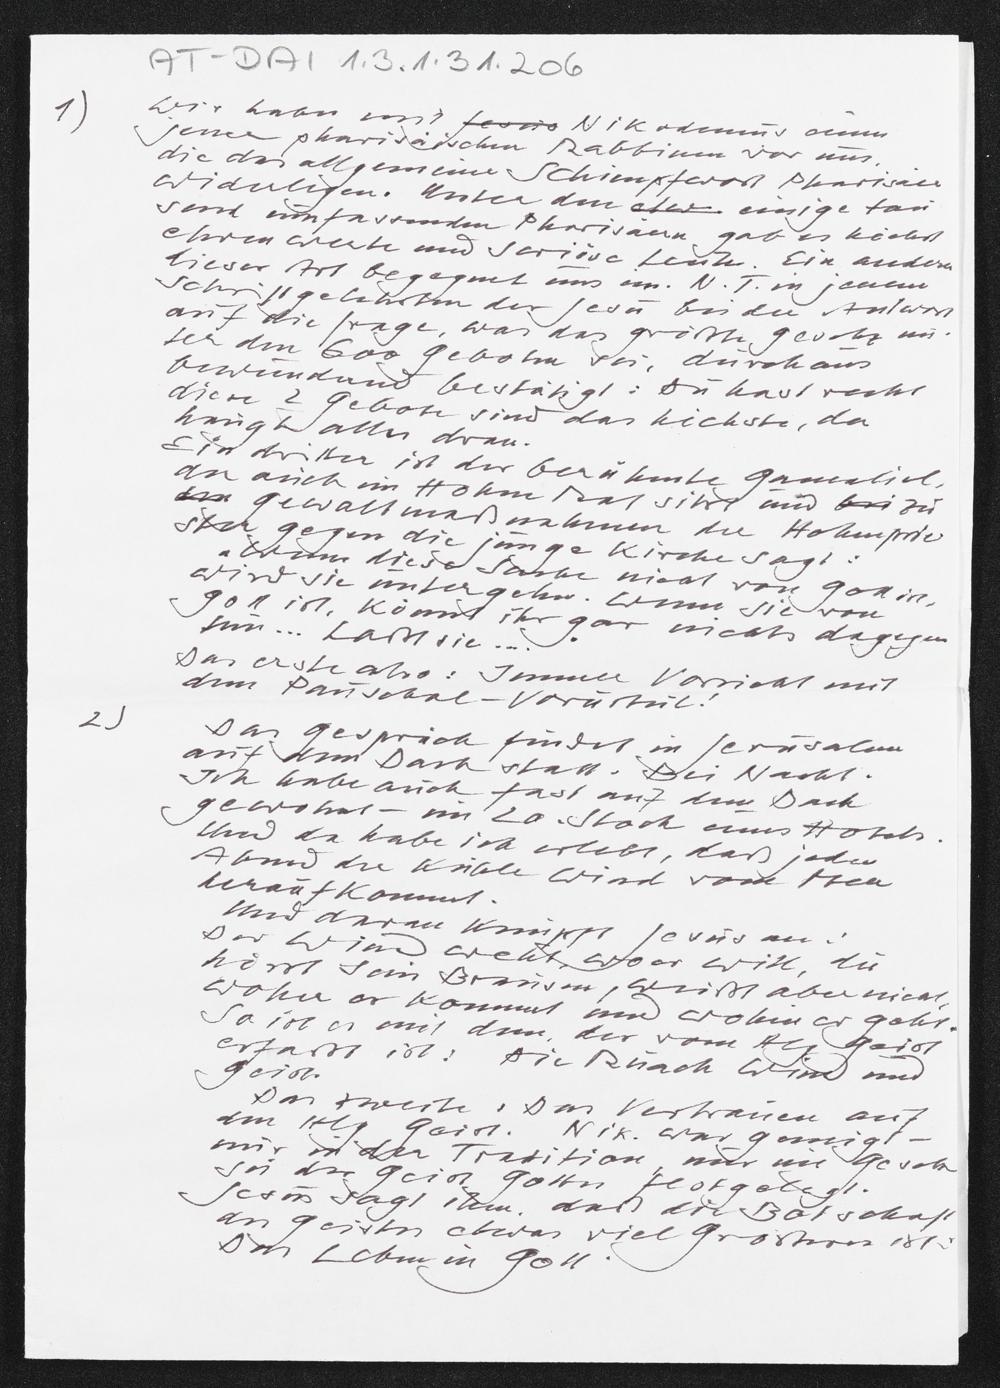 AT-DAI 1.3.1.31.206
1) Wir haben mit Jesus Nikodemus einen
jener pharisäischen Rabbinen vor uns,
die das allgemeine Schimpfwort Pharisäer
widerlegen. Unter den etwa einige tau
send umfassenden Pharisäern gab es höchst
ehrenwerte und seriöse Leute. Ein anderer
dieser Art begegnet uns im N.T. in jenem
Schriftgelehrten der Jesu bei der Antwort
auf die Frage, was das größte Gesetz un-
ter den 600 Geboten sei, durchaus
bewundernd bestätigt: Du hast recht
diese 2 Gebote sind das höchste, da
hängt alles dran.
Ein dritter ist der berühmte Gamaliel,
der auch im Hohen Rat sitzt und bei zu
den Gewaltmaßnahmen der Hohenprie
ster gegen die junge Kirche sagt:
"Wenn diese Sache nicht von Gott ist,
wird sie untergehn. Wenn sie von
Gott ist, könnt ihr gar nichts dagegen
tun... Laßt sie ...
Das erste also: Immer Vorsicht mit
dem Pauschal-Vorurteil!
2) Das Gespräch findet in Jerusalem
auf dem Dach statt. Bei Nacht.
Ich habe auch fast auf dem Dach
gewohnt - im 20. Stock eines Hotels.
Und da habe ich erlebt, daß jeden
Abend der kühle Wind vom Meer
heraufkommt.
Und daran knüpft Jesus an:
Der Wind weht, wo er will, du
hörst sein Brausen, weißt aber nicht,
woher er kommt und wohin er geht.
So ist es mit dem, der vom Hlg Geist
erfaßt ist: Die Ruach Wind und
Geist.
Das zweite: Das Vertrauen auf
den Hlg Geist. Nik. war geneigt -
nur in der Tradition, nur im Gesetz
sei der Geist Gottes festgelegt.
Jesus sagt ihm, daß die Botschaft
des Geistes etwas viel Größeres ist:
Das Leben in Gott.